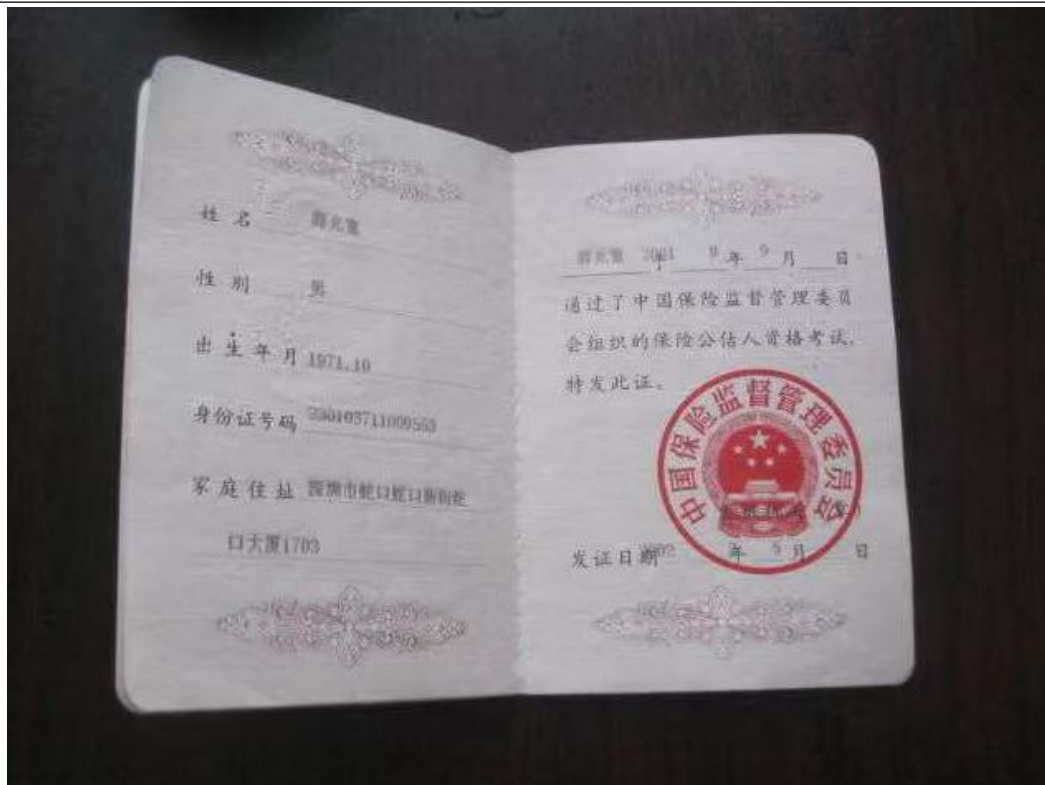 姓名
性别 男
出生年月 1971.10
身份证号码
家庭住址 深圳市蛇口蛇口新街蛇
口大厦1703
2001 9年9月 日
通过了中国保险监督管理委员
会组织的保险公估人资格考试,
特发此证。
中国保险监督管理委员会
发证日期 年 5月 日